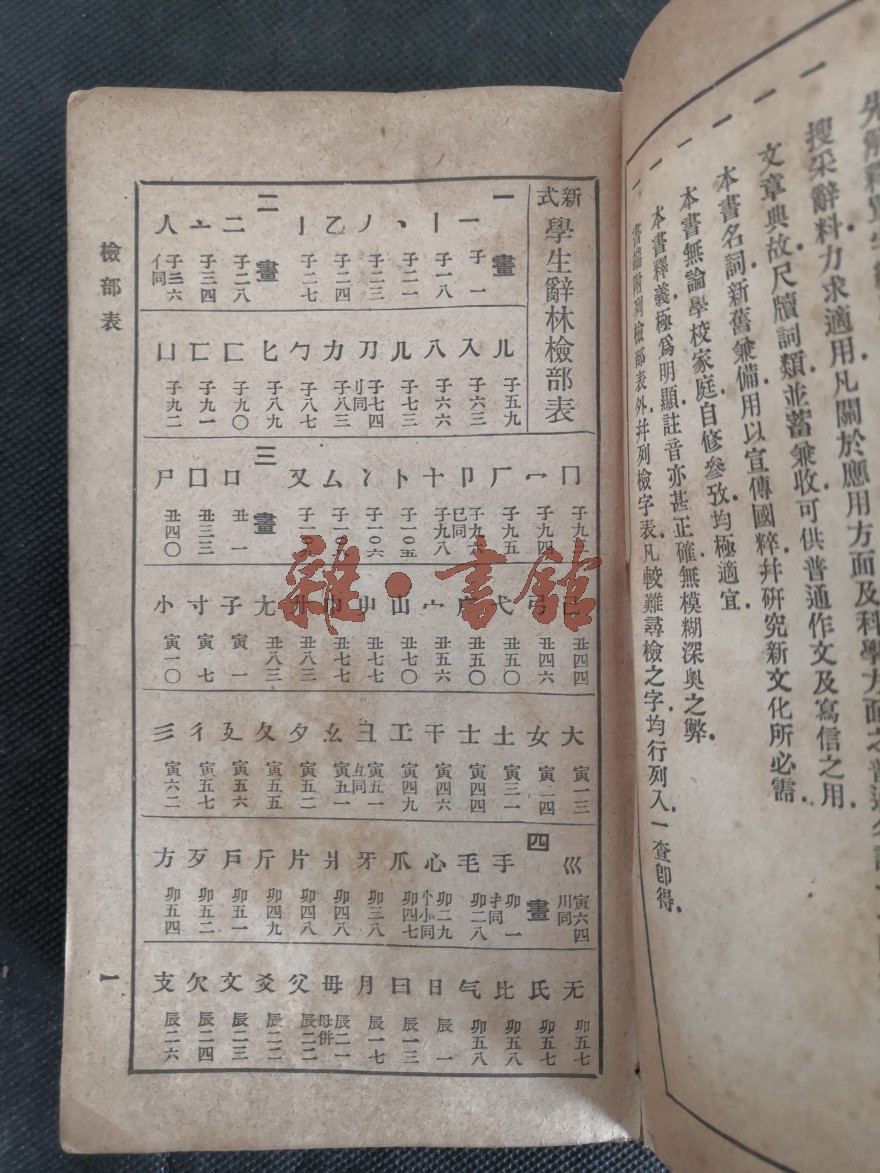 搜采辭料力求適用凡關於應用方面及科學方面之普通
文章典故尺牘詞類並蓄兼收可供普通作文及寫信之用．
一 本書名詞新舊兼備用以宣傳國粹幷研究新文化所必需．
一 本書無論學校家庭自修參攷均極適宜．
一 本書釋義極爲明顯註音亦甚正確無模糊深奥之弊．
一 書端附列檢部表外幷列檢字表凡較難尋檢之字均行列入一查卽得．
新式學生辭林檢部表
一畫
一 子一
丨 子一八
丶 子二一
丿 子二三
乙 子二四
亅 子二七
二畫
二 子二八
亠 子三四
人 子三六 亻同
儿 子五九
入 子六三
八 子六六
几 子七三
刀 子七四 刂同
力 子八三
勹 子八七
匕 子八九
匚 子九〇
匸 子九一
凵 子九二
冂
冖 子九四
厂 子九五
卩
十 子九八
卜 子一〇五
冫 子一〇六
厶
又
三畫
口 丑一
囗 丑三三
尸 丑四〇
己 丑四四
弓 丑四六
弋 丑五〇
丑五〇
宀 丑五六
山 丑七〇
屮 丑七七
巾 丑七七
廾 丑八三
尢 丑八三
子 寅一
寸 寅七
小 寅一〇
大 寅一三
女 寅二四
土 寅三一
士 寅四四
干 寅四六
工 寅四九
彐 寅五一 彑同
幺 寅五一
夕 寅五二
夂 寅五五
廴 寅五六
彳 寅五七
彡 寅六二
巛 寅六四 川同
四畫
手 卯一 扌同
毛 卯二八
心 卯二九 忄㣺同
爪 卯四七
牙 卯三八
爿 卯四八
片 卯四八
斤 卯四九
戶 卯五一
歹 卯五二
方 卯五四
无 卯五七
氏 卯五七
比 卯五八
气 卯五八
日 辰一
曰 辰一三
月 辰一七
毋 辰二一 母併
父 辰二二
爻 辰二二
文 辰二三
欠 辰二四
支 辰二六
檢部表
一
雜·書館